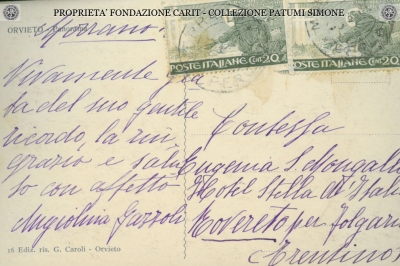 PROPRIETA' FONDAZIONE CARIT - COLLEZIONE PATUMI SIMONE
ORVIETO - Panorama
POSTE ITALIANE CENT. 20
POSTE ITALIANE CENT. 20
Vivamente gra
ta del suo gentile
ricordo, la rin
grazio e salu
to con affetto
Angiolina Gazzoli
16 Ediz. ris. G. Caroli - Orvieto
Contessa
Eugenia S.
Hotel Stella d'Italia
Rovereto per Folgaria
Trentino